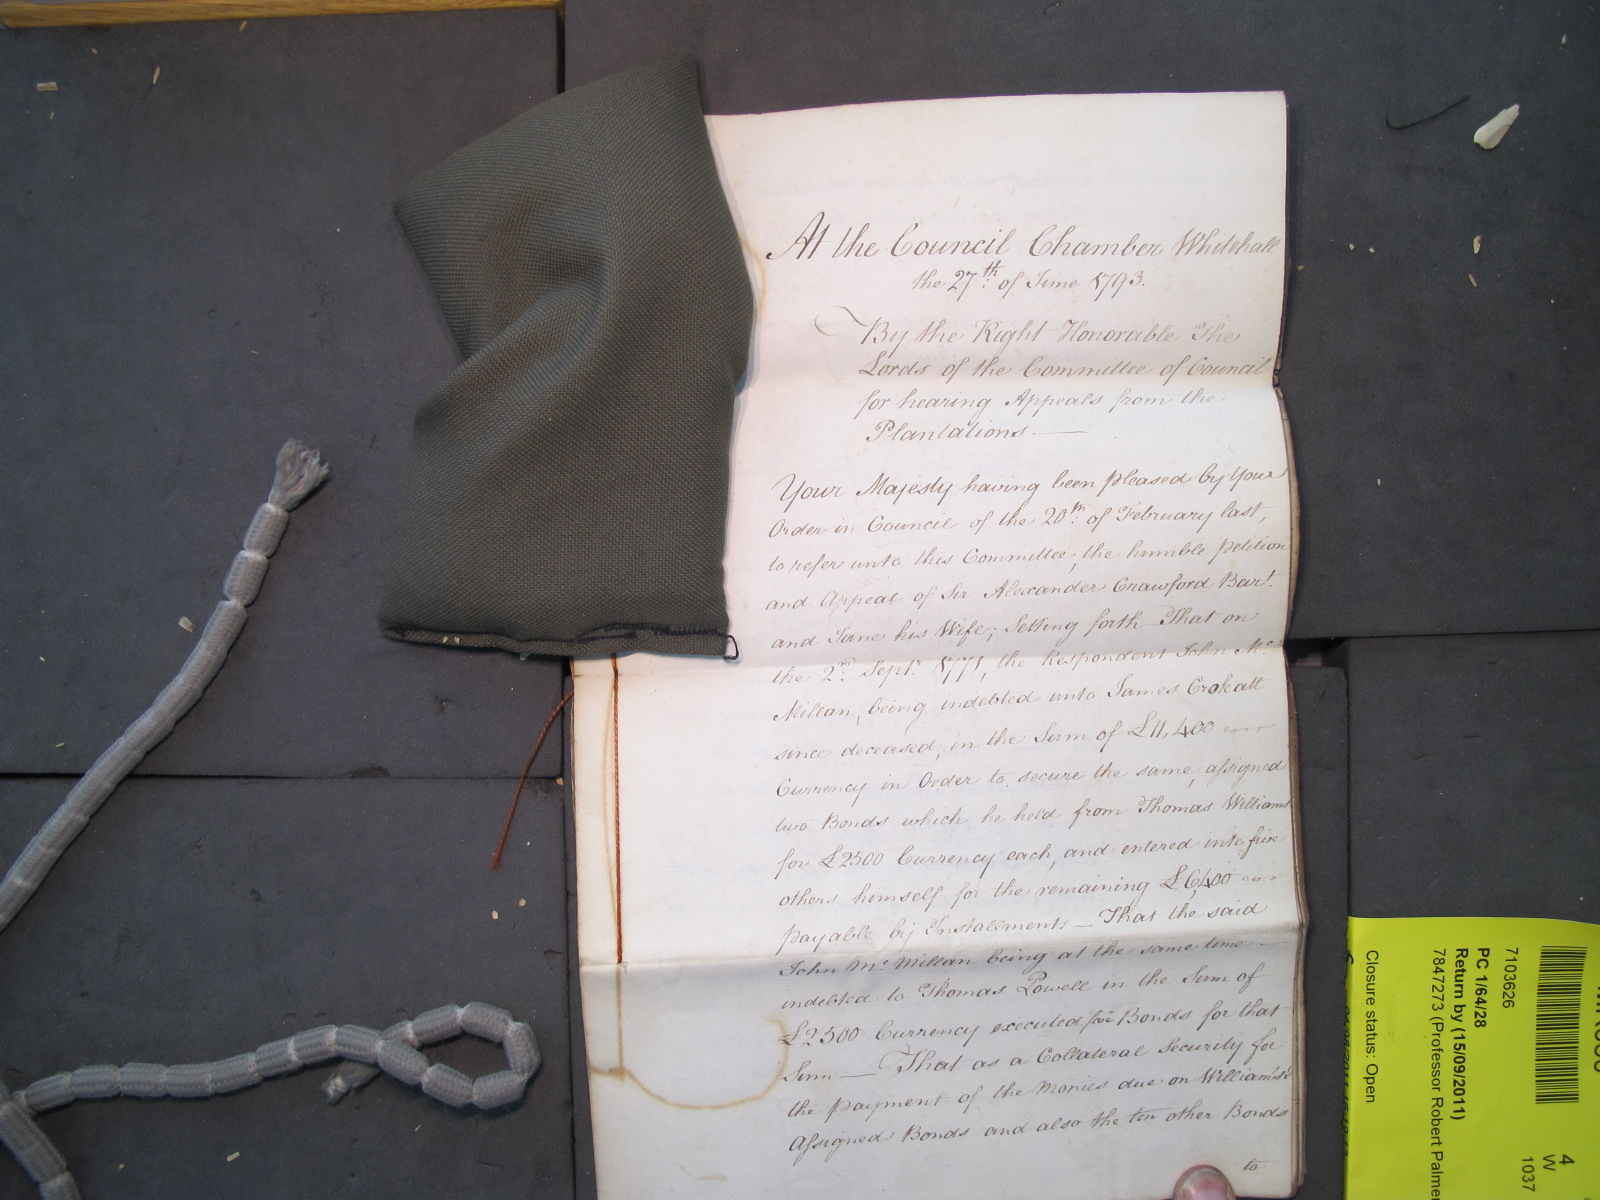 At the Council Chamber Whitehall
the 27th of June 1793.
By the Right Honorable The
Lords of the Committee of Council
for hearing Appeals from the
Plantations.
Your Majesty having been pleased by Your
Order in Council of the 20th of February last,
to refer unto this Committee, the humble petition
and Appeal of Sir Alexander Crawford Bart.
and Jane his Wife; Setting forth That on
the 2nd Sept. 1771, the Respondent John Mc
Millan, being indebted unto James Crokatt
since deceased, in the Sum of £11,400
Currency in Order to secure the same, assigned
two Bonds which he held from Thomas Williams
for £2500 Currency each, and entered into five
others himself for the remaining £6,400
payable by Installments — That the said
John McMillan being at the same time
indebted to Thomas Powell in the Sum of
£2500 Currency executed five Bonds for that
Sum — That as a Collateral Security for
the payment of the Monies due on Williams's
Assigned Bonds and also the ten other Bonds
to
7103626
PC 1/64/28
Return by (15/09/2011)
7847273 (Professor Robert Palmer
Closure status: Open
4
W
1037